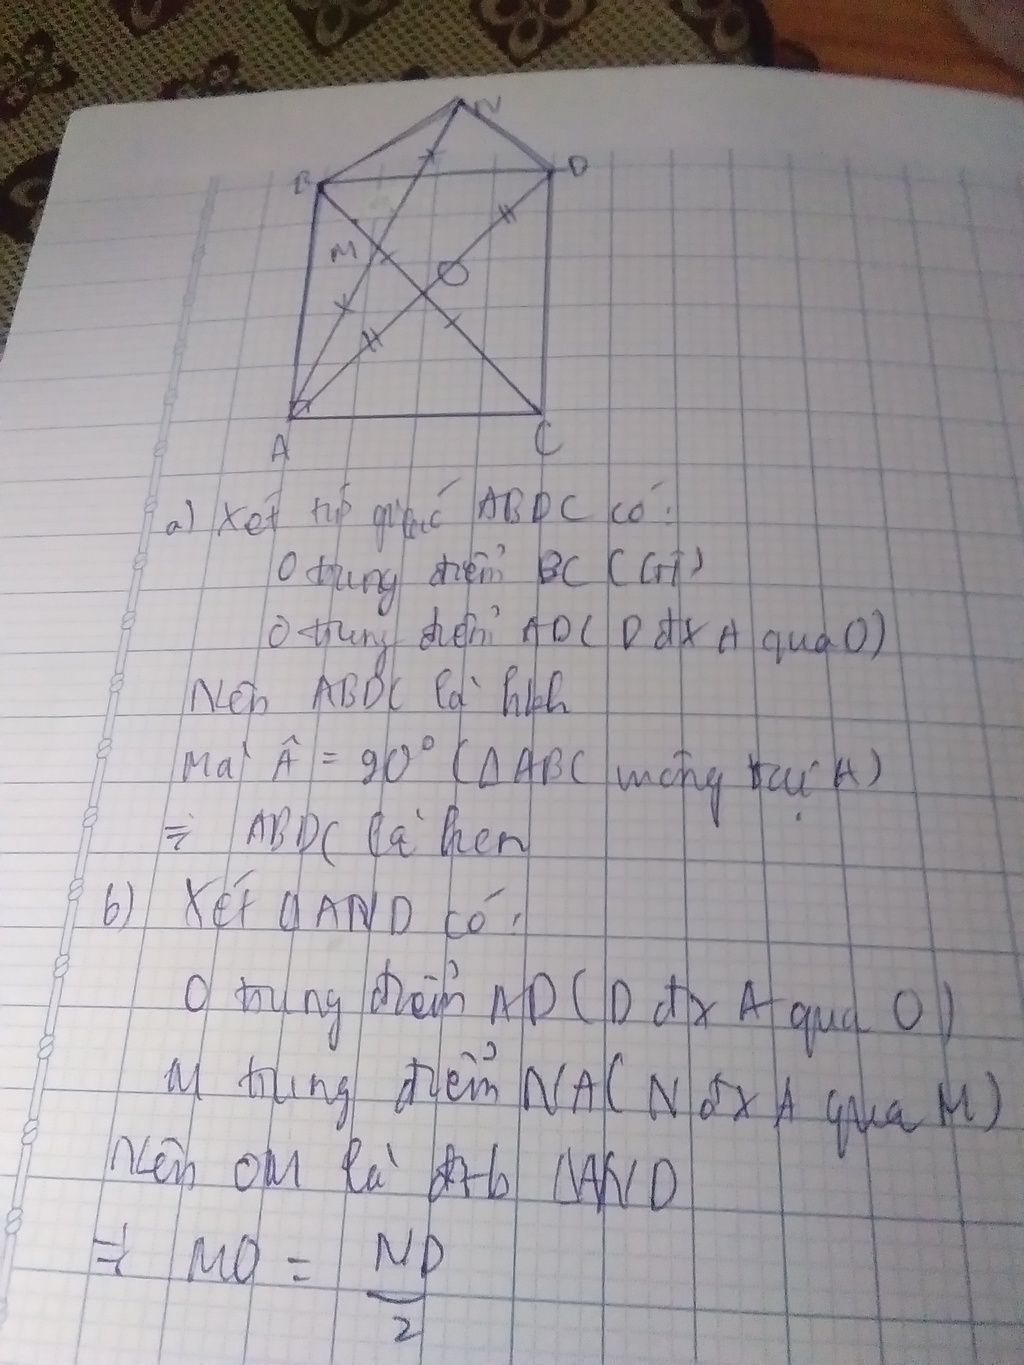 N
B
D
M
O
A
C
a) Xét tứ giác ABDC có:
O trung điểm BC (GT)
O trung điểm AD (D đx A qua O)
Nên ABDC là hbh
Mà Â = 90° (Δ ABC vuông tại A)
=> ABDC là hcn
b) Xét Δ AND có:
O trung điểm AD (D đx A qua O)
M trung điểm NA (N đx A qua M)
Nên OM là đtb ΔAND
=> MO = ND
2